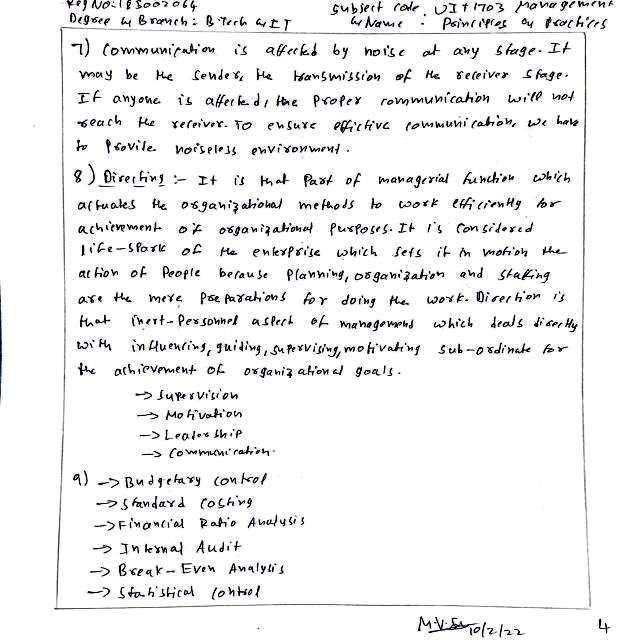 Reg No: 185002064
Subject code : UIT1703 Management
Degree & Branch : B Tech & IT
& Name : Principles & Practices
7) Communication is affected by noise at any stage. It
may be the sender, the transmission of the receiver stage.
If anyone is affected, the proper communication will not
reach the receiver. To ensure effictive communication, we have
to Provile noiseless environment.
8) Directing :- It is that Part of managerial function which
actuates the organizational methods to work efficiently for
achievement of organizational Purposes. It is Considered
life-spark of the enterprise which sets it in motion the
action of People because Planning, organization and staffing
are the mere Preparations for doing the work. Direction is
that inert-Personnel aspect of management which deals directly
with influencing, guiding, supervising, motivating sub-ordinate for
the achievement of organizational goals.
→ Supervision
→ Motivation
→ Leadership
→ Communication.
9) → Budgetary control
→ Standard Costing
→ Financial Ratio Analysis
→ Internal Audit
→ Break-Even Analysis
→ Statistical Control
10/2/22
4